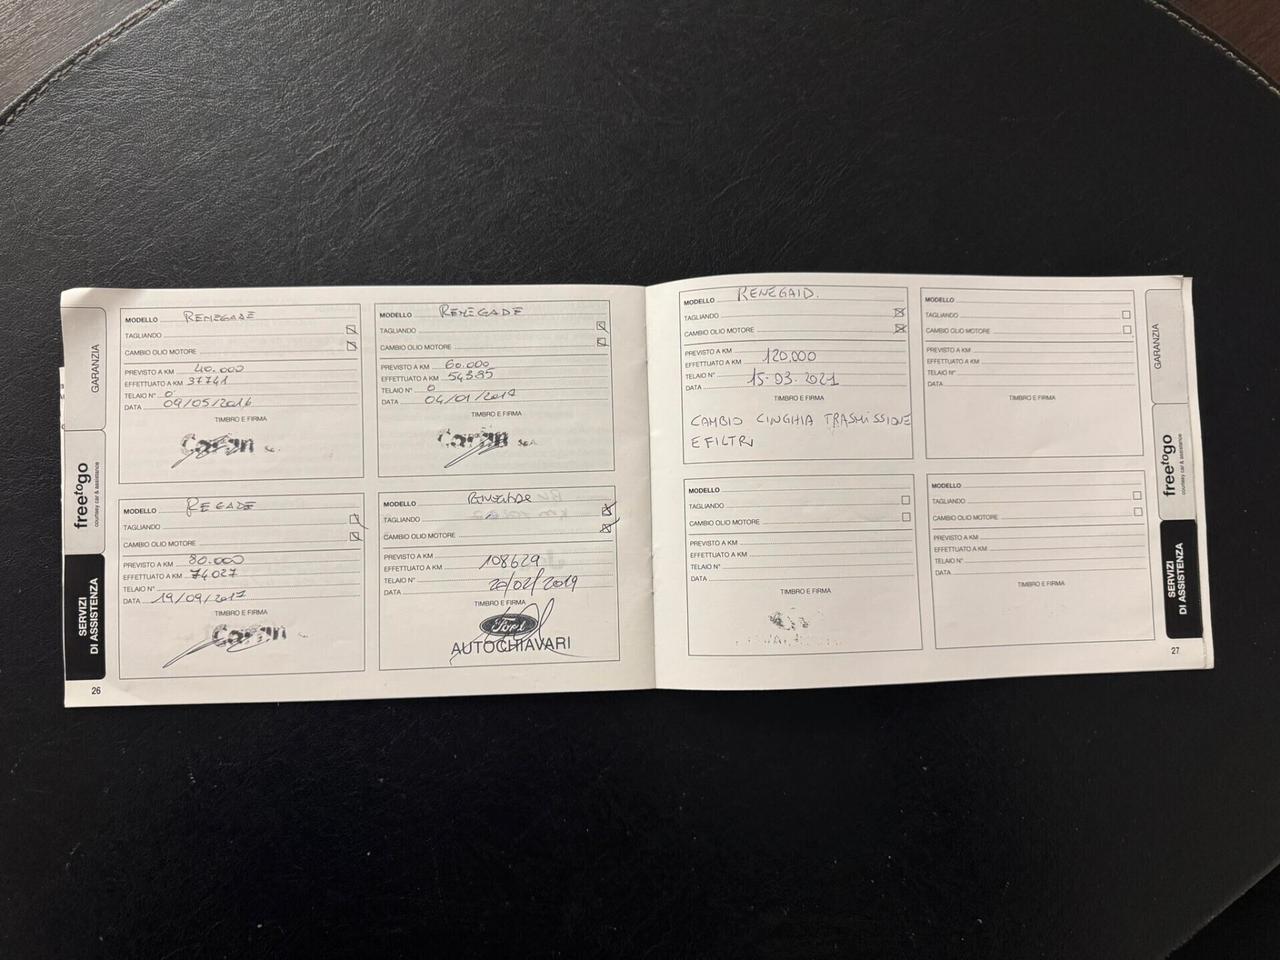 GARANZIA
freetogo
courtesy car & assistance
SERVIZI
DI ASSISTENZA
26
MODELLO RENEGADE
TAGLIANDO
CAMBIO OLIO MOTORE
PREVISTO A KM 40.000
EFFETTUATO A KM 37741
TELAIO N° 0
DATA 09/05/2016
TIMBRO E FIRMA
MODELLO RENEGADE
TAGLIANDO
CAMBIO OLIO MOTORE
PREVISTO A KM 60.000
EFFETTUATO A KM 54395
TELAIO N° 0
DATA 04/01/2017
TIMBRO E FIRMA
MODELLO REGADE
TAGLIANDO
CAMBIO OLIO MOTORE
PREVISTO A KM 80.000
EFFETTUATO A KM 74027
TELAIO N°
DATA 19/09/2017
TIMBRO E FIRMA
MODELLO RENEGADE
TAGLIANDO
CAMBIO OLIO MOTORE
PREVISTO A KM
EFFETTUATO A KM 108629
TELAIO N°
DATA 20/02/2019
TIMBRO E FIRMA
Ford
AUTOCHIAVARI
MODELLO RENEGAID.
TAGLIANDO
CAMBIO OLIO MOTORE
PREVISTO A KM
EFFETTUATO A KM 120,000
TELAIO N°
DATA 15.03.2021
TIMBRO E FIRMA
CAMBIO CINGHIA TRASMISSIONE
E FILTRI
MODELLO
TAGLIANDO
CAMBIO OLIO MOTORE
PREVISTO A KM
EFFETTUATO A KM
TELAIO N°
DATA
TIMBRO E FIRMA
MODELLO
TAGLIANDO
CAMBIO OLIO MOTORE
PREVISTO A KM
EFFETTUATO A KM
TELAIO N°
DATA
TIMBRO E FIRMA
MODELLO
TAGLIANDO
CAMBIO OLIO MOTORE
PREVISTO A KM
EFFETTUATO A KM
TELAIO N°
DATA
TIMBRO E FIRMA
GARANZIA
freetogo
courtesy car & assistance
SERVIZI
DI ASSISTENZA
27